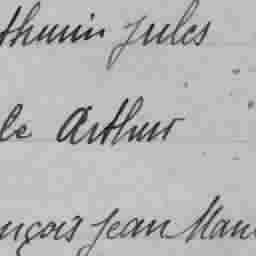 thurin Jules
le Arthur
nçois Jean Marie